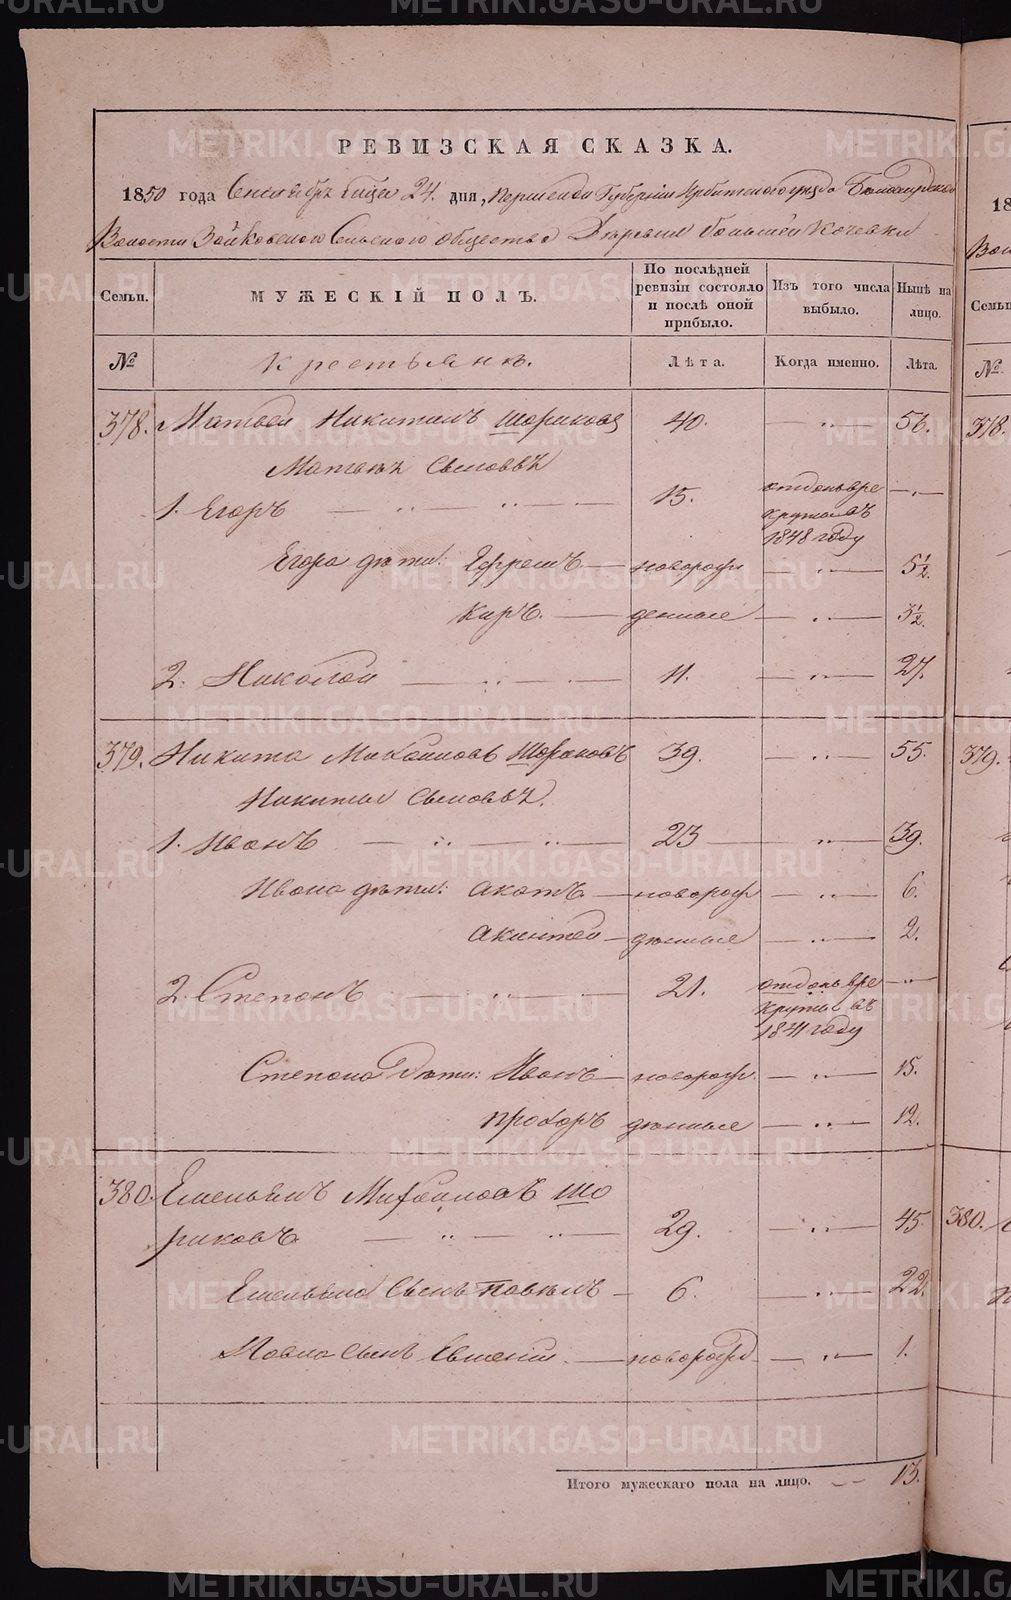 METRIKI.GASO-URAL.RU
РЕВИЗСКАЯ СКАЗКА.
1850 года Сентября 24. дня, Пермской Губернии Ирбитского уезда
Волости Зайковского Сельского общества Деревни большей Кочевки
Семьи. МУЖЕСКІЙ ПОЛЪ. По послѣдней ревизіи состояло и послѣ оной прибыло. Изъ того числа выбыло. Нынѣ на лицо.
№ Крестьянъ. Лѣта. Когда именно. Лѣта.
378. Матвей Никитинъ Шориковъ 40. — „ — 56.
Матвея сыновья
1. Егоръ — „ — „ — 15. отданъ въ рекруты въ 1848 году — „ —
Егора дѣти: Ефремъ — новорож — „ — 5½.
Киръ. — денные — „ — 3½.
2. Николай — „ — 11. — „ — 27.
379. Никита Михайловъ Шориковъ 39. — „ — 55.
Никиты сыновья.
1. Иванъ — „ — „ — 23 — „ — 39.
Ивана дѣти: — новорож — „ — 6.
— денные — „ — 2.
2. Степанъ — „ — 21. отданъ въ рекруты въ 1841 году — „ —
Степана дѣти: Иванъ — новорож. — „ — 15.
Прохоръ денные — „ — 12.
380. Емельянъ Михайловъ Шо
риковъ — „ — „ — 29. — „ — 45.
Емельяна сынъ Павелъ — 6. — „ — 22.
Павла сынъ Евгений. — новорожд — „ — 1.
Итого мужескаго пола на лицо. — — 13.
18
378.
379.
380.
Семьи
№